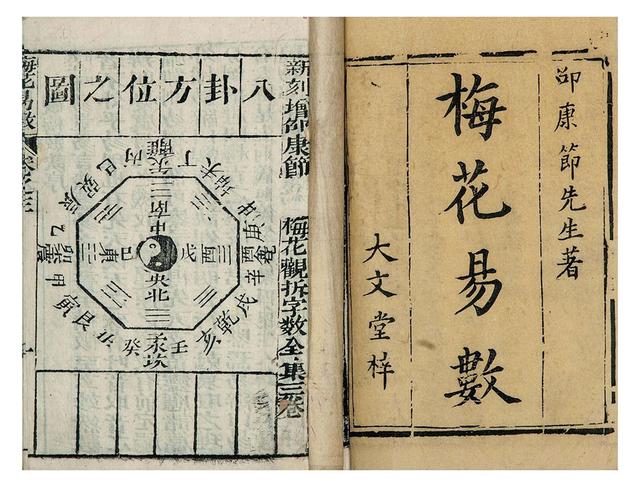 邵康節先生著
梅花易數
大文堂梓
新刻增邵康節
梅花觀拆字數全集三卷
八卦方位之圖
丙午離丁
未坤申
庚酉兌辛
戌乾亥
壬子坎癸
丑艮寅
甲卯震乙
辰巽巳
南中
東己
戊西
央北
梅花易數
卷之三